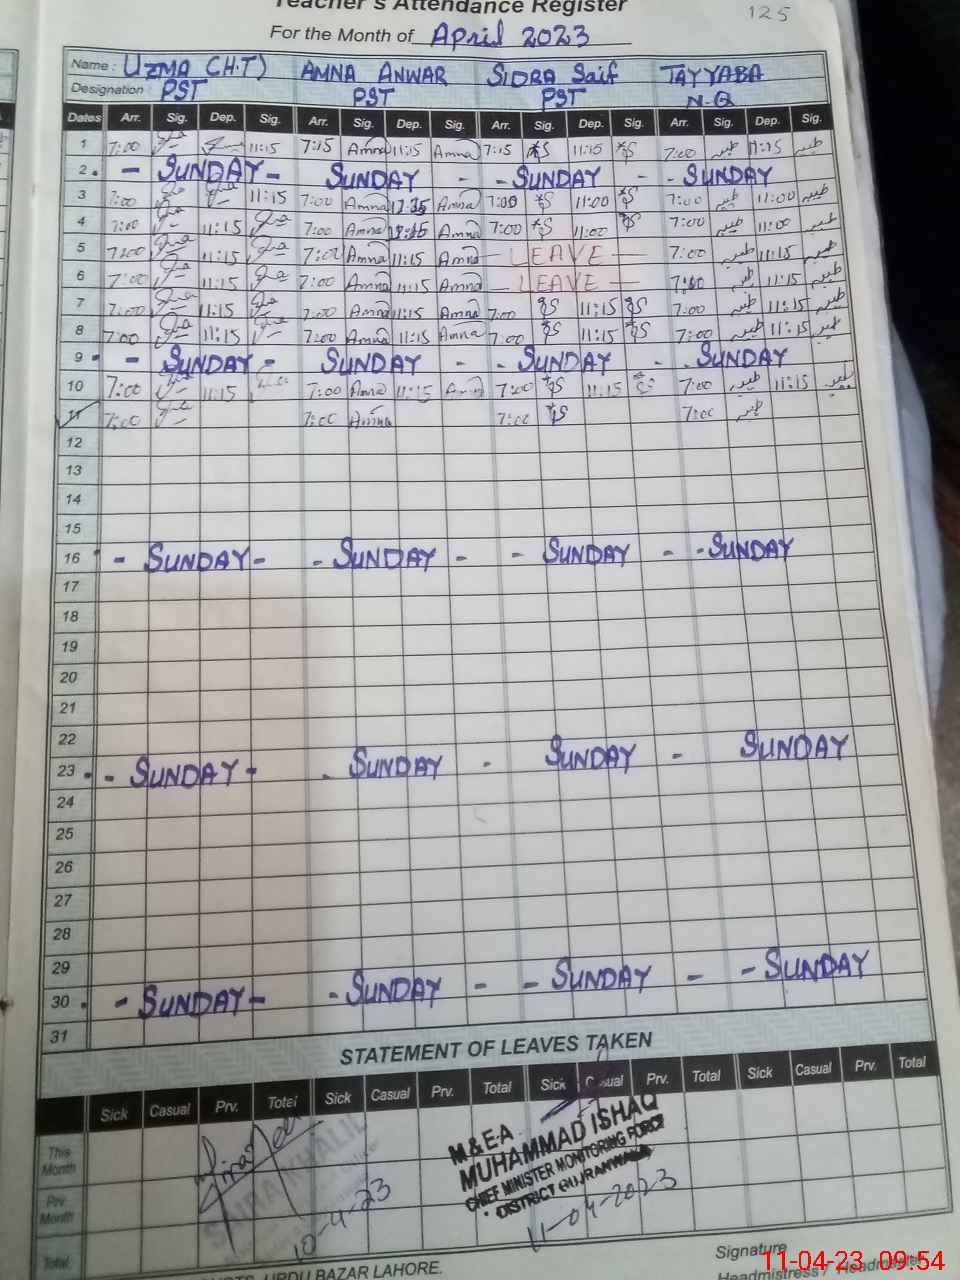 Teacher's Attendance Register
125
For the Month of April 2023
Name : UZMA (H.T) AMNA ANWAR SIDRA Saif TAYYABA
Designation PST PST PST N.Q
Dates Arr. Sig. Dep. Sig. Arr. Sig. Dep. Sig. Arr. Sig. Dep. Sig. Arr. Sig. Dep. Sig.
1 7:00 11:15 7:15 Amna 11:15 Amna 7:15 11:15 7:00 طیبہ 11:15 طیبہ
2 - SUNDAY - SUNDAY - - SUNDAY - - SUNDAY
3 7:00 11:15 7:00 Amna Amna 7:00 11:00 7:00 طیبہ 11:00 طیبہ
4 7:00 11:15 7:00 Amna Amna 7:00 11:00 7:00 طیبہ 11:00 طیبہ
5 7:00 11:15 7:00 Amna 11:15 Amna - LEAVE - 7:00 طیبہ 11:15 طیبہ
6 7:00 11:15 7:00 Amna 11:15 Amna - LEAVE - 7:00 طیبہ 11:15 طیبہ
7 7:00 11:15 7:00 Amna 11:15 Amna 7:00 11:15 7:00 طیبہ 11:15 طیبہ
8 7:00 11:15 7:00 Amna 11:15 Amna 7:00 11:15 7:00 طیبہ 11:15 طیبہ
9 - SUNDAY - SUNDAY - - SUNDAY - SUNDAY
10 7:00 11:15 7:00 Amna 11:15 Amna 7:00 11:15 7:00 طیبہ 11:15 طیبہ
11 7:00 7:00 Amna 7:00 7:00 طیبہ
12
13
14
15
16 - SUNDAY - - SUNDAY - - SUNDAY - - SUNDAY
17
18
19
20
21
22
23 - SUNDAY - - SUNDAY - SUNDAY - SUNDAY
24
25
26
27
28
29
30 - SUNDAY - - SUNDAY - - SUNDAY - - SUNDAY
31
STATEMENT OF LEAVES TAKEN
Sick Casual Prv. Total Sick Casual Prv. Total Sick Casual Prv. Total Sick Casual Prv. Total
This Month
Prv Month
Total
10-4-23
M&E.A
MUHAMMAD ISHAQ
CHIEF MINISTER MONITORING FORCE
DISTRICT GUJRANWALA
11-04-2023
URDU BAZAR LAHORE.
Signature
Headmistress / Headmaster
11-04-23 09:54